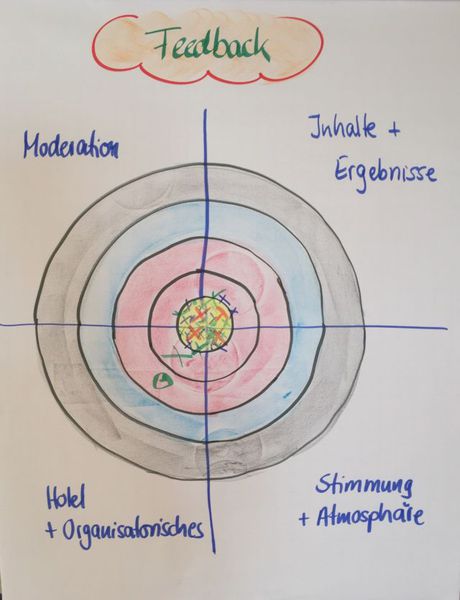 Feedback
Moderation
Inhalte +
Ergebnisse
Hotel
+ Organisatorisches
Stimmung
+ Atmosphäre